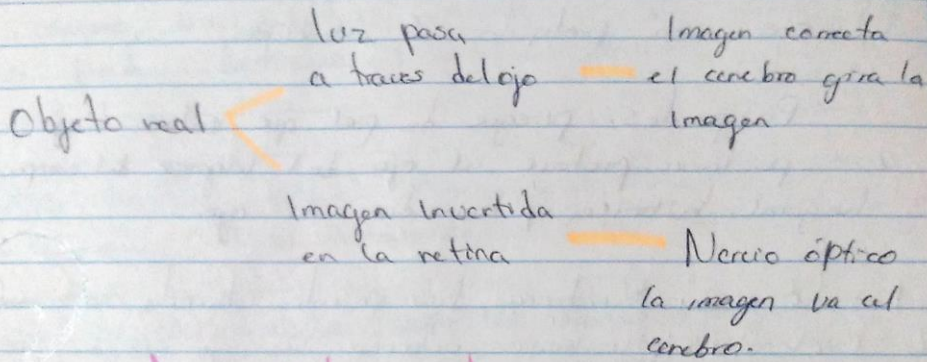 Objeto real
luz pasa
a traves del ojo
Imagen correcta
el cerebro gira la
Imagen
Imagen Invertida
en la retina
Nervio óptico
la imagen va al
cerebro.